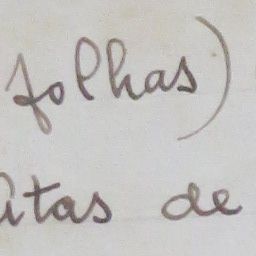 folhas)
itas de